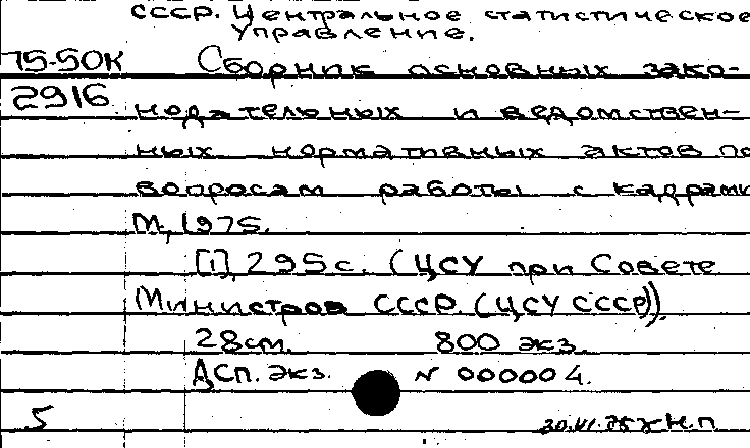 СССР. Центральное статистическое
Управление.
75-50К Сборник основных зако-
2916 нодательных и ведомствен-
ных нормативных актов по
вопросам работы с кадрами
М., 1975.
[1], 295 с. (ЦСУ при Совете
Министров СССР. (ЦСУ СССР)).
28 см. 800 экз.
ДСП. Экз. N 000004.
5